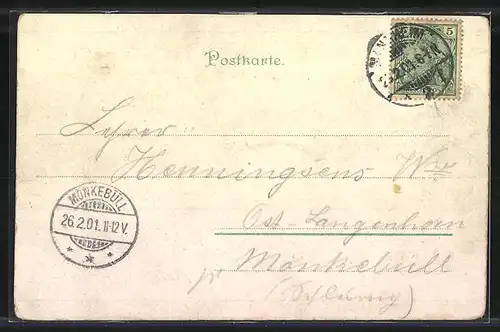 Postkarte.
5
Lehrer
Henningsens Wwe
Ost-Langenhorn
pr Mönkebüll
(Schleswig)
MÖNKEBÜLL
26.2.01.11-12V.